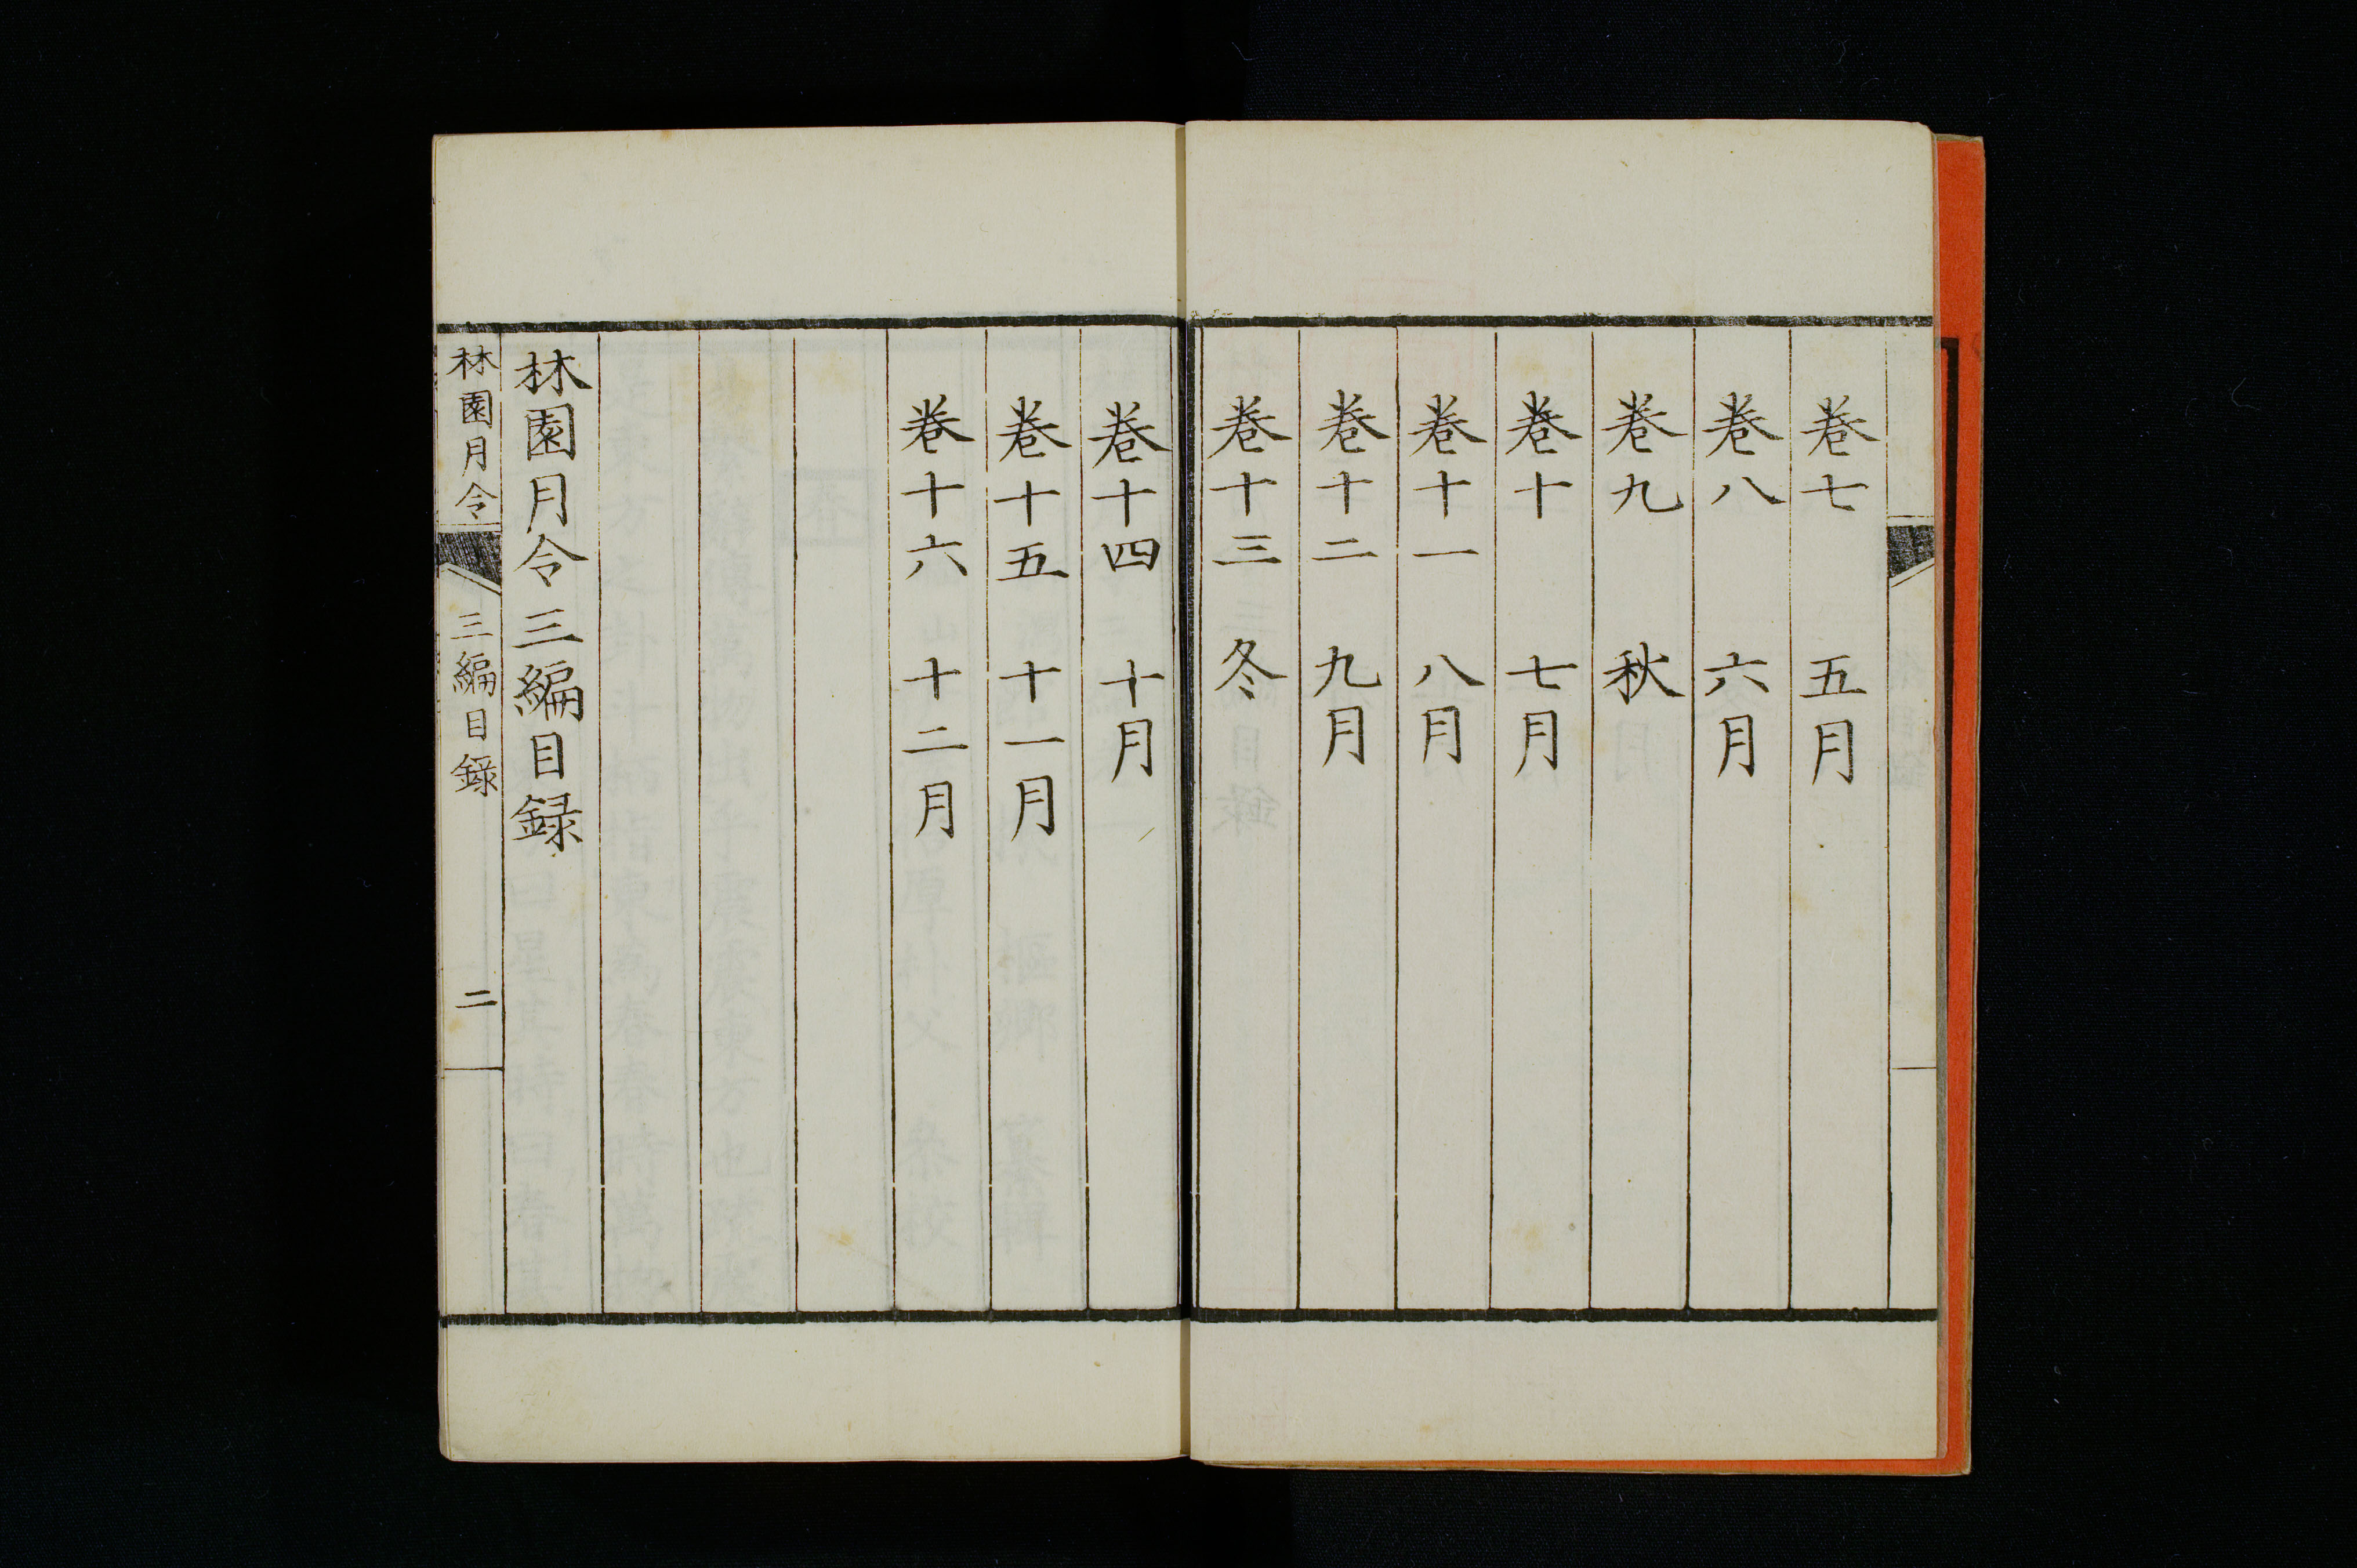 卷七　五月
卷八　六月
卷九　秋
卷十　七月
卷十一　八月
卷十二　九月
卷十三　冬
卷十四　十月
卷十五　十一月
卷十六　十二月
林園月令三編目録
林園月令　三編目錄　二